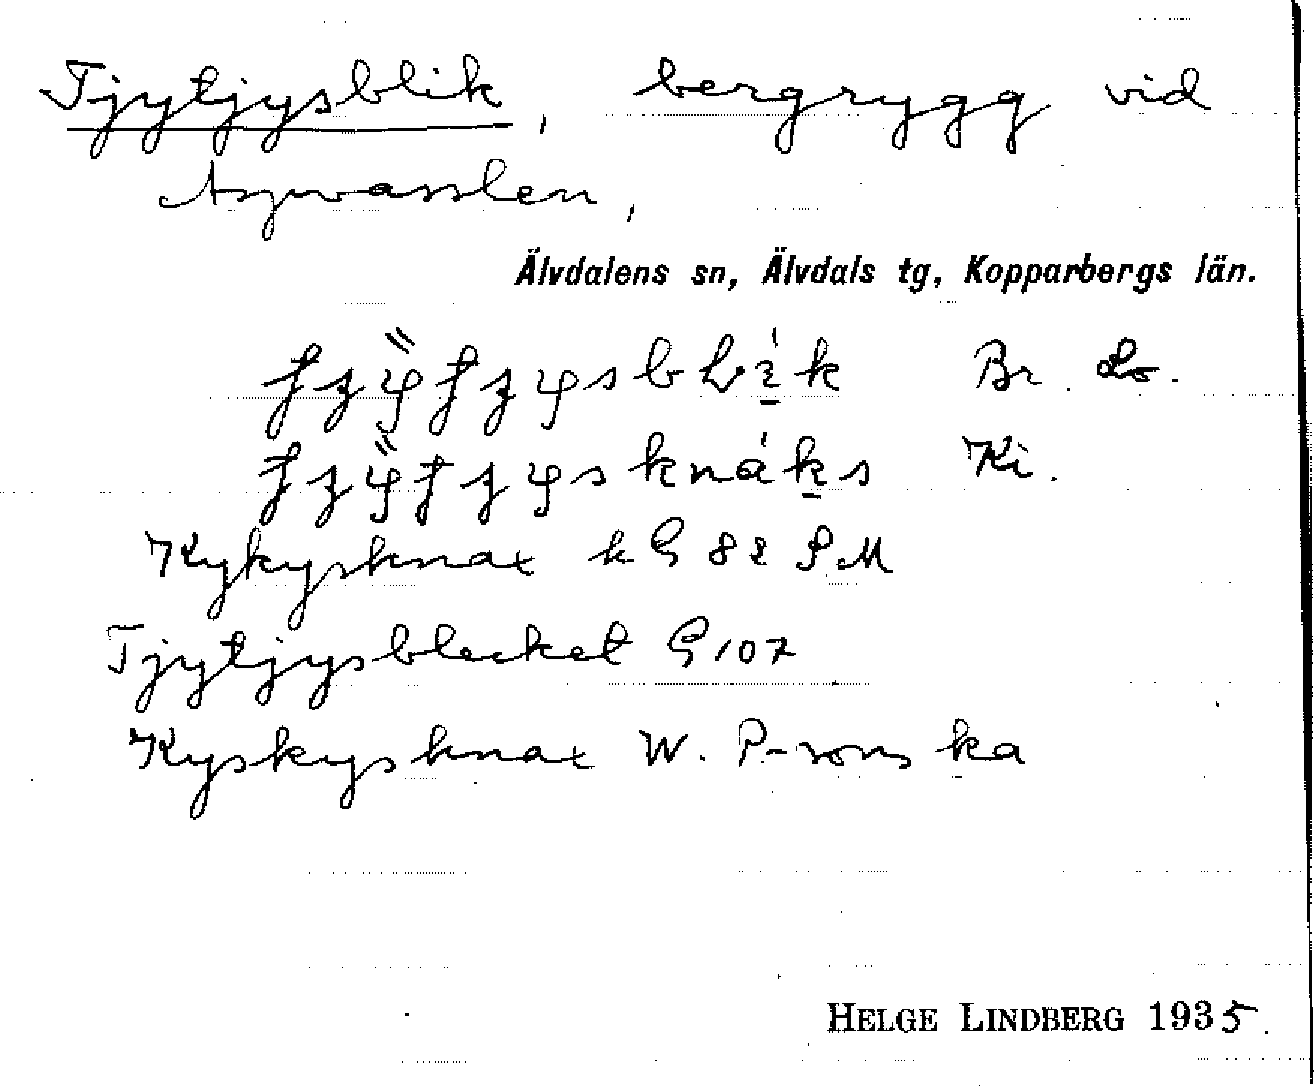 Tjytjysblik, bergrygg vid
Åsjwasslen,
Älvdalens sn, Älvdals tg, Kopparbergs län.
Br. Lo.
knáks Ki.
Kykysknax k G 82 S M
Tjytjysblecket G 107
Kyskysknax W. P-sons ka
HELGE LINDBERG 1935.